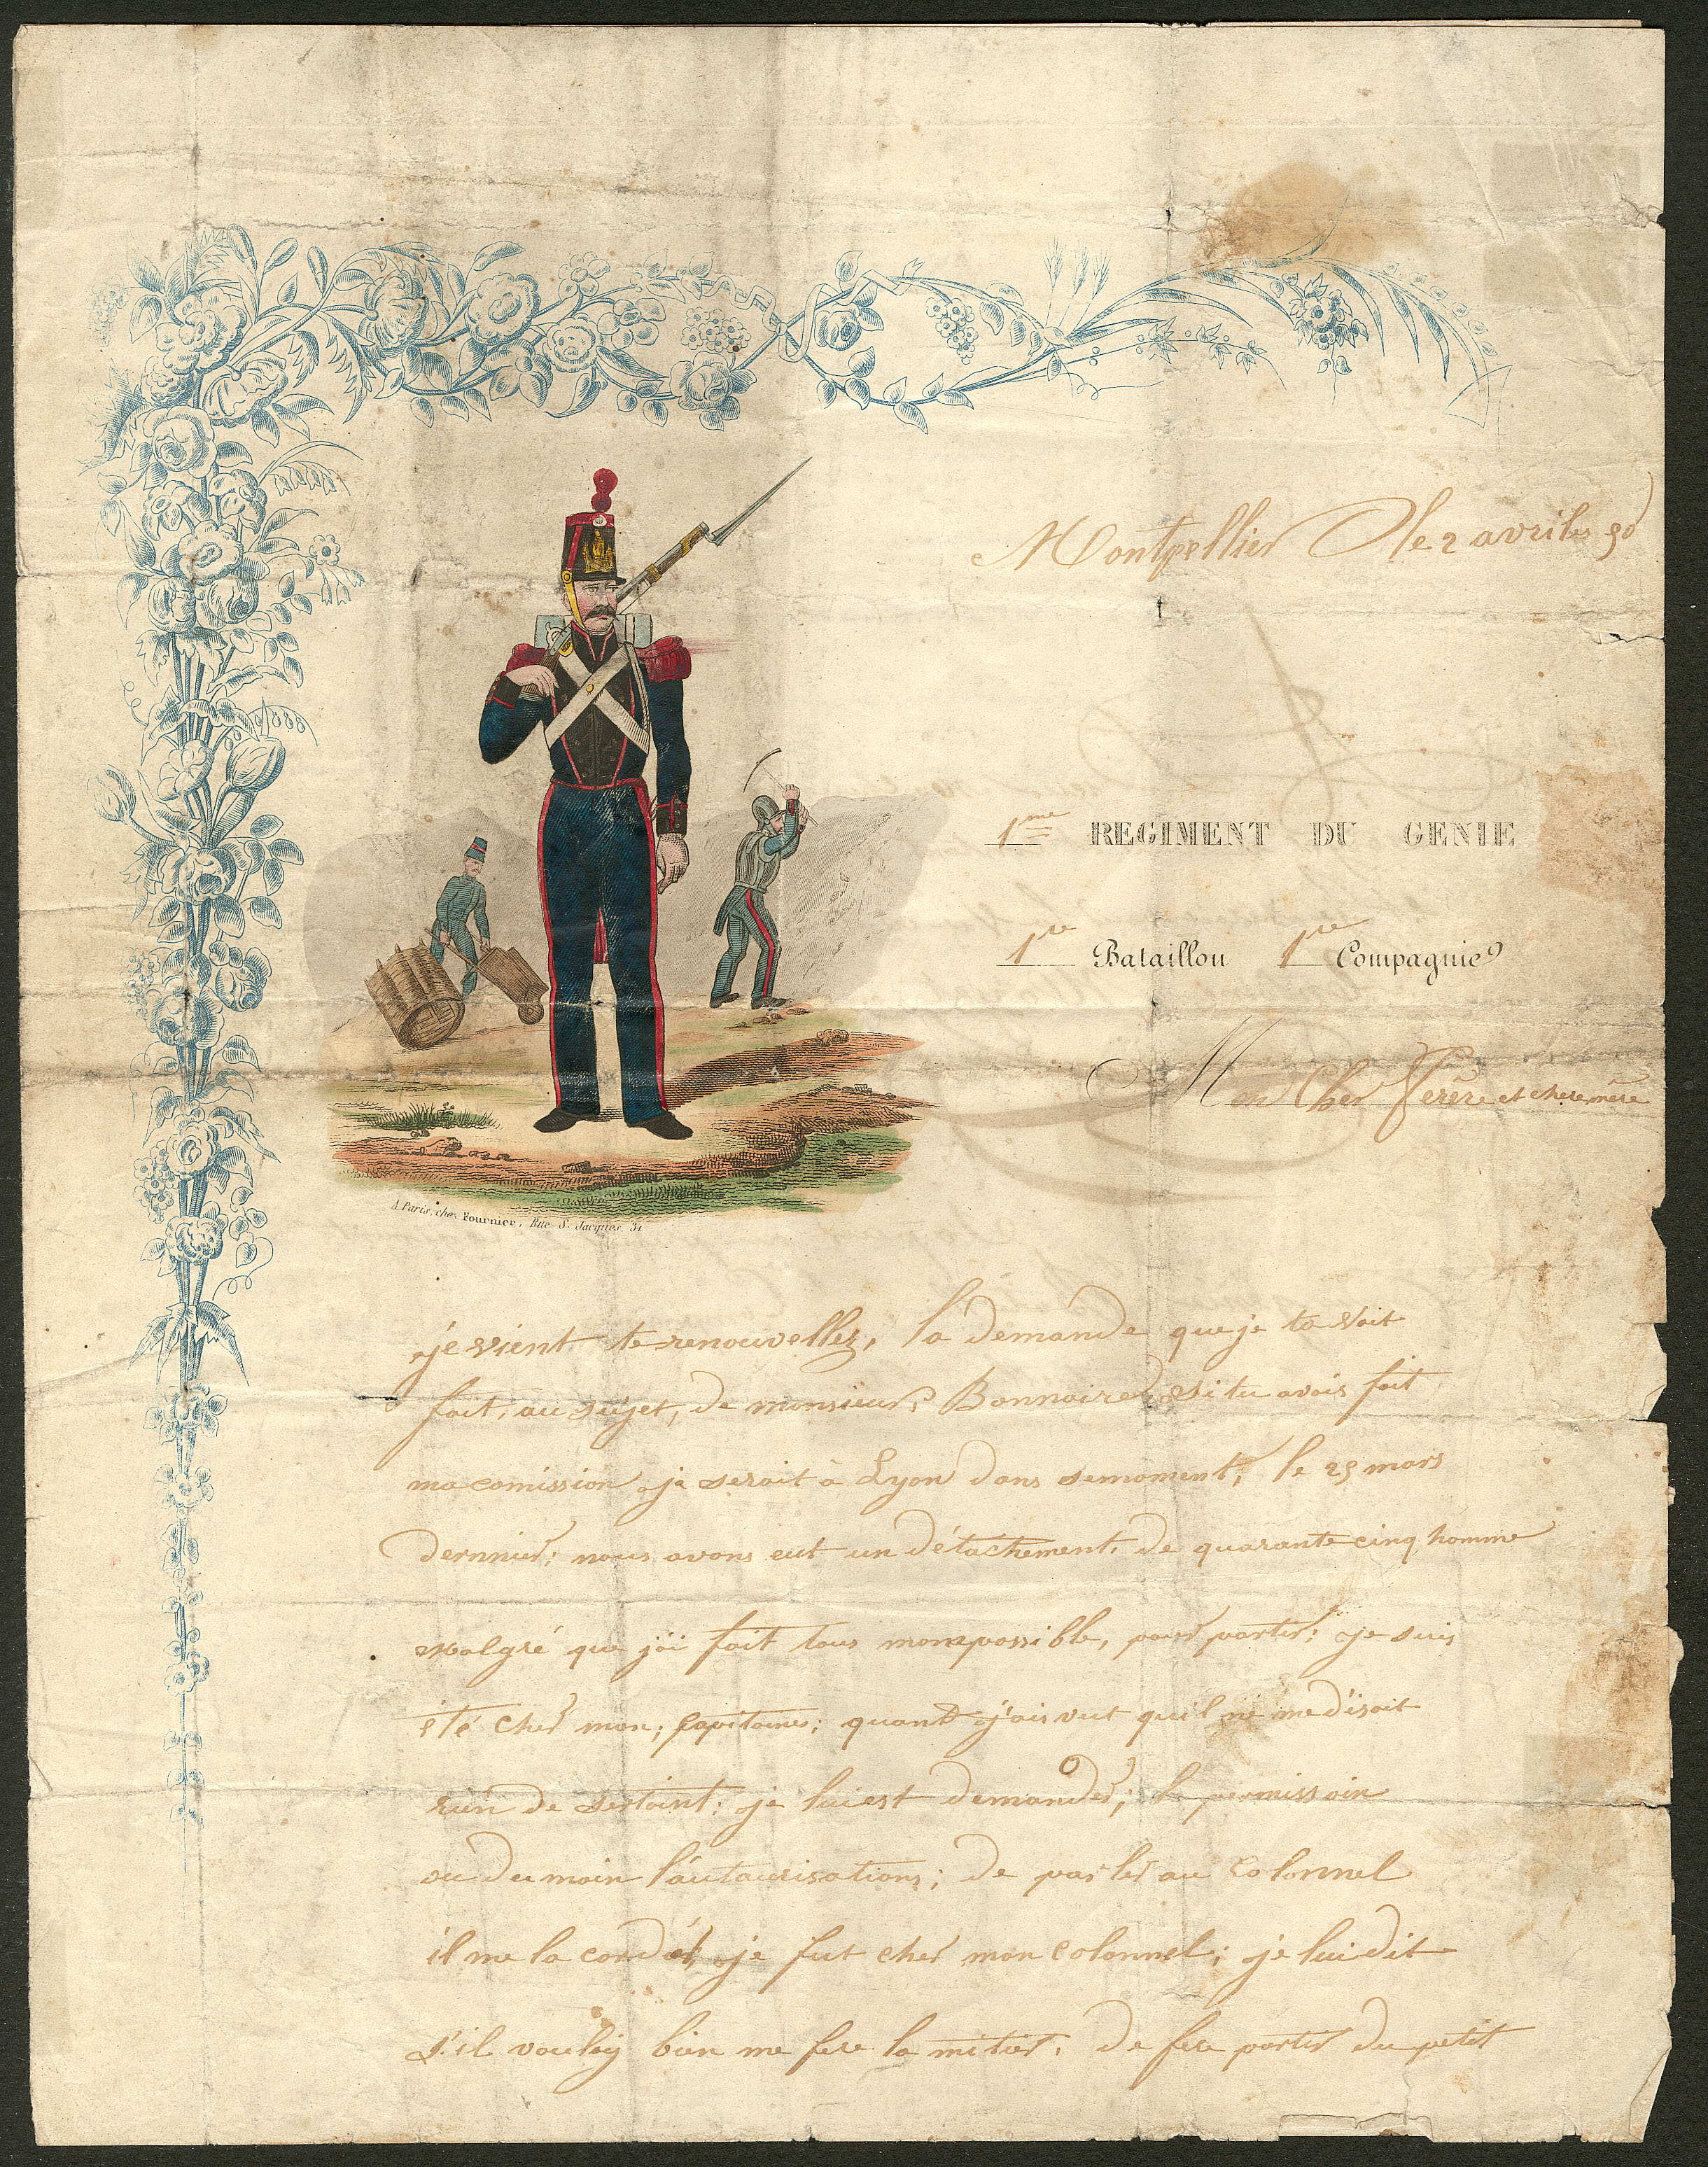 Montpellier le 2 avriles 50
1me REGIMENT DU GENIE
1re Bataillon 1re Compagnie
Mon Cher Ferère et chere mère
A Paris, chez Fournier, Rue S. Jacques, 31
je vient te renouveller, la demande que je ta vait
fait, au sujet, de monsieur, Bonnaire, si tu avais fait
ma comission je serait à Lyon dans se moment, le 25 mars
dernnier; nous avons eut un détachement, de quarante cinq homme
malgré que j'ai fait tous mon possible, pour partir; je suis
été cher mon; capitaines; quant j'ais vut qu'il ne me disait
rien de sertaint; je lui est demander; la permissoin
ou du main l'autaurisations; de parler au Colonnel
il me la cordat, je fut cher mon colonnel; je lui dit
s'il vouley bien me fere la mitier, de fere partir du petit